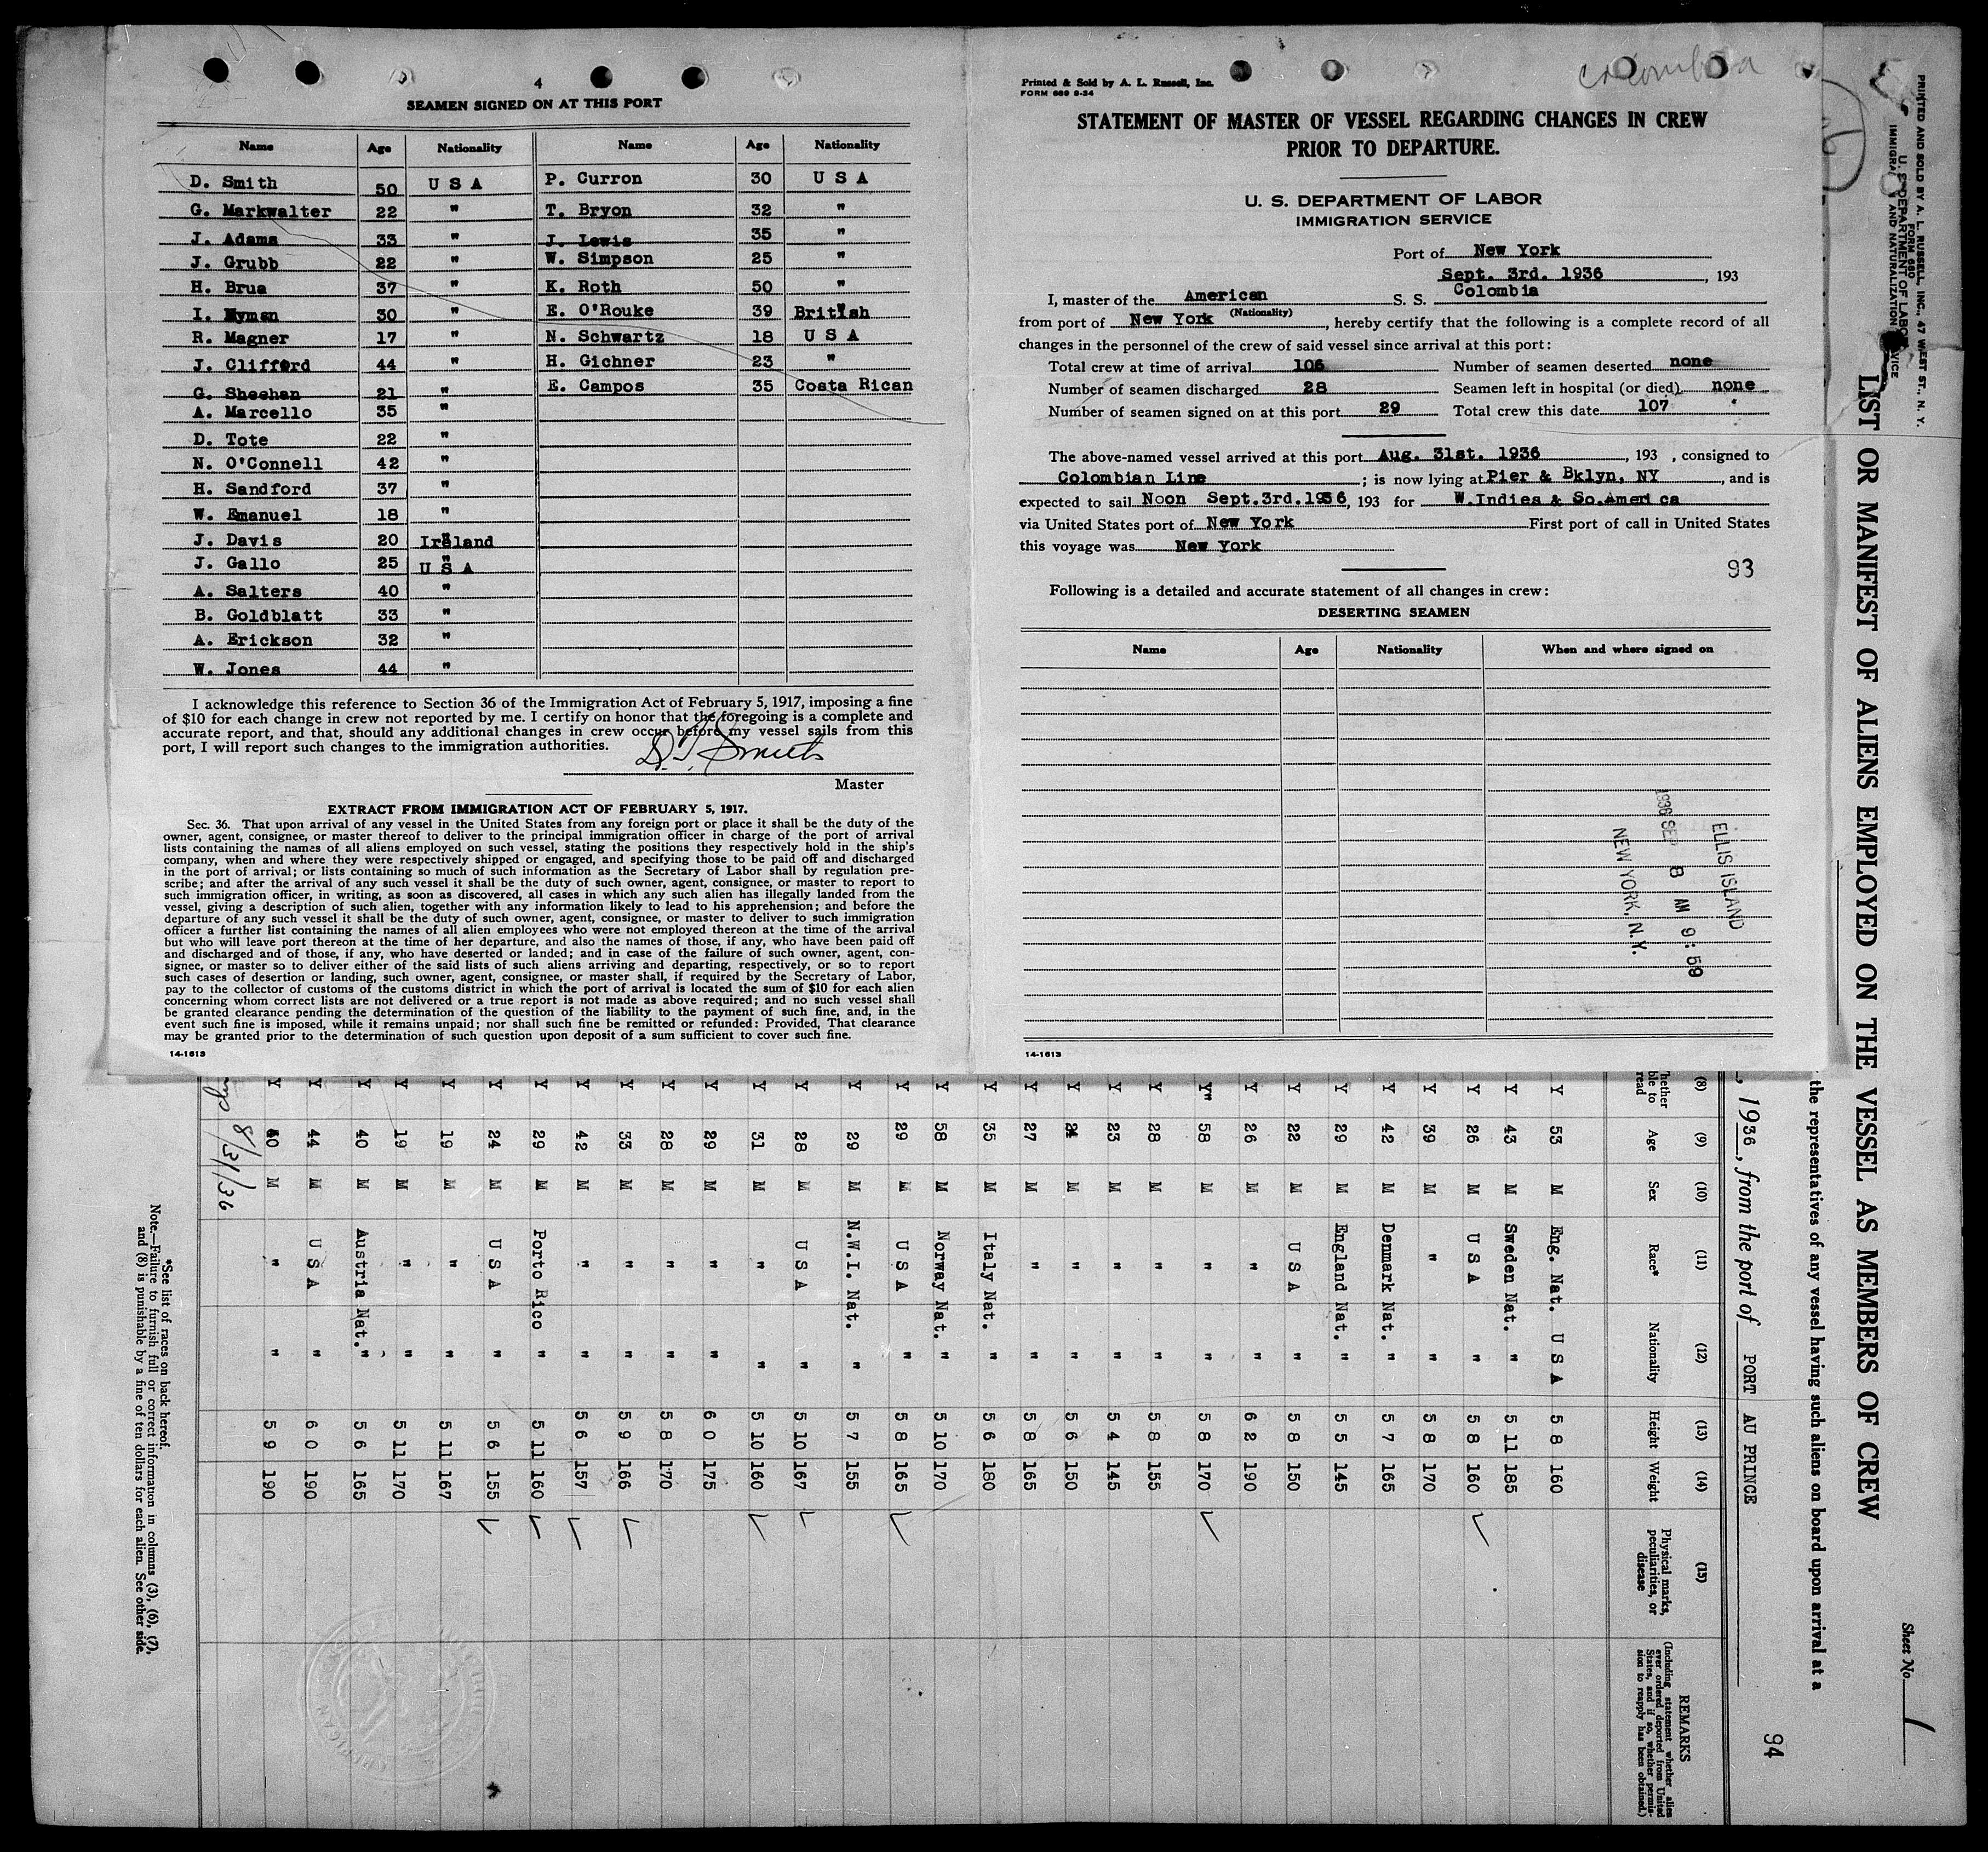 4
SEAMEN SIGNED ON AT THIS PORT
Name Age Nationality Name Age Nationality
D. Smith 50 U S A P. Curron 30 U S A
G. Markwalter 22 " T. Bryon 32 "
J. Adams 33 " J. Lewis 35 "
J. Grubb 22 " W. Simpson 25 "
H. Brua 37 " K. Roth 50 "
I. Hyman 30 " E. O'Rouke 39 British
R. Magner 17 " N. Schwartz 18 U S A
J. Clifford 44 " H. Gichner 23 "
G. Sheehan 21 " E. Campos 35 Costa Rican
A. Marcello 35 "
D. Tote 22 "
N. O'Connell 42 "
H. Sandford 37 "
W. Emanuel 18 "
J. Davis 20 Ireland
J. Gallo 25 U S A
A. Salters 40 "
B. Goldblatt 33 "
A. Erickson 32 "
W. Jones 44 "
I acknowledge this reference to Section 36 of the Immigration Act of February 5, 1917, imposing a fine
of $10 for each change in crew not reported by me. I certify on honor that the foregoing is a complete and
accurate report, and that, should any additional changes in crew occur before my vessel sails from this
port, I will report such changes to the immigration authorities.
D. T. Smith
Master
EXTRACT FROM IMMIGRATION ACT OF FEBRUARY 5, 1917.
Sec. 36. That upon arrival of any vessel in the United States from any foreign port or place it shall be the duty of the
owner, agent, consignee, or master thereof to deliver to the principal immigration officer in charge of the port of arrival
lists containing the names of all aliens employed on such vessel, stating the positions they respectively hold in the ship's
company, when and where they were respectively shipped or engaged, and specifying those to be paid off and discharged
in the port of arrival; or lists containing so much of such information as the Secretary of Labor shall by regulation pre-
scribe; and after the arrival of any such vessel it shall be the duty of such owner, agent, consignee, or master to report to
such immigration officer, in writing, as soon as discovered, all cases in which any such alien has illegally landed from the
vessel, giving a description of such alien, together with any information likely to lead to his apprehension; and before the
departure of any such vessel it shall be the duty of such owner, agent, consignee, or master to deliver to such immigration
officer a further list containing the names of all alien employees who were not employed thereon at the time of the arrival
but who will leave port thereon at the time of her departure, and also the names of those, if any, who have been paid off
and discharged and of those, if any, who have deserted or landed; and in case of the failure of such owner, agent, con-
signee, or master so to deliver either of the said lists of such aliens arriving and departing, respectively, or so to report
such cases of desertion or landing, such owner, agent, consignee, or master shall, if required by the Secretary of Labor,
pay to the collector of customs of the customs district in which the port of arrival is located the sum of $10 for each alien
concerning whom correct lists are not delivered or a true report is not made as above required; and no such vessel shall
be granted clearance pending the determination of the question of the liability to the payment of such fine, and, in the
event such fine is imposed, while it remains unpaid; nor shall such fine be remitted or refunded: Provided, That clearance
may be granted prior to the determination of such question upon deposit of a sum sufficient to cover such fine.
14-1613
Printed & Sold by A. L. Russell, Inc.
FORM 689 9-34
Colombia
STATEMENT OF MASTER OF VESSEL REGARDING CHANGES IN CREW
PRIOR TO DEPARTURE.
U. S. DEPARTMENT OF LABOR
IMMIGRATION SERVICE
Port of New York
Sept. 3rd. 1936, 193
I, master of the American S. S. Colombia
(Nationality)
from port of New York, hereby certify that the following is a complete record of all
changes in the personnel of the crew of said vessel since arrival at this port:
Total crew at time of arrival 106 Number of seamen deserted none
Number of seamen discharged 28 Seamen left in hospital (or died) none
Number of seamen signed on at this port 29 Total crew this date 107
The above-named vessel arrived at this port Aug. 31st. 1936, 193 , consigned to
Colombian Line; is now lying at Pier & Bklyn, NY, and is
expected to sail Noon Sept.3rd.1936, 193 for W.Indies & So.America
via United States port of New York First port of call in United States
this voyage was New York
93
Following is a detailed and accurate statement of all changes in crew:
DESERTING SEAMEN
Name Age Nationality When and where signed on
ELLIS ISLAND
1936 SEP 8 AM 9:59
NEW YORK, N. Y.
14-1613
PRINTED AND SOLD BY A. L. RUSSELL, INC., 47 WEST ST., N. Y.
FORM 680
U. S. DEPARTMENT OF LABOR
IMMIGRATION AND NATURALIZATION SERVICE
Sheet No. 1
LIST OR MANIFEST OF ALIENS EMPLOYED ON THE VESSEL AS MEMBERS OF CREW
the representatives of any vessel having such aliens on board upon arrival at a
94
, 1936, from the port of PORT AU PRINCE
(8) (9) (10) (11) (12) (13) (14) (15) REMARKS
Whether able to read Age Sex Race* Nationality Height Weight Physical marks, peculiarities, or disease (Including statement whether alien ever ordered deported from United States, and if so, whether permission to reapply has been obtained.)
Y 53 M Eng. Nat. U S A 5 8 160
Y 43 M Sweden Nat. " 5 11 185
Y 26 M U S A " 5 8 160
Y 39 M " " 5 8 170
Y 42 M Denmark Nat. " 5 7 165
Y 29 M England Nat. " 5 5 145
Y 22 M U S A " 5 8 150
Y 26 M " " 6 2 190
Y" 58 M " " 5 8 170
Y 28 M " " 5 8 155
Y 23 M " " 5 4 145
Y 24 M " " 5 6 150
Y 27 M " " 5 8 165
Y 35 M Italy Nat. " 5 6 180
Y 58 M Norway Nat. " 5 10 170
Y 29 M U S A " 5 8 165
Y 29 M N.W.I. Nat. " 5 7 155
Y 28 M U S A " 5 10 167
Y 31 M " " 5 10 160
Y 29 M " " 6 0 175
Y 28 M " " 5 8 170
Y 33 M " " 5 9 166
Y 42 M " " 5 6 157
Y 29 M Porto Rico " 5 11 160
Y 24 M U S A " 5 6 155
Y 19 M " " 5 11 167
Y 19 M " " 5 11 170
Y 40 M Austria Nat. " 5 6 165
Y 44 M U S A " 6 0 190
Y 40 M " " 5 9 190
8/31/36
*See list of races on back hereof.
Note.—Failure to furnish full or correct information in columns (3), (6), (7),
and (8) is punishable by a fine of ten dollars for each alien. See other side.